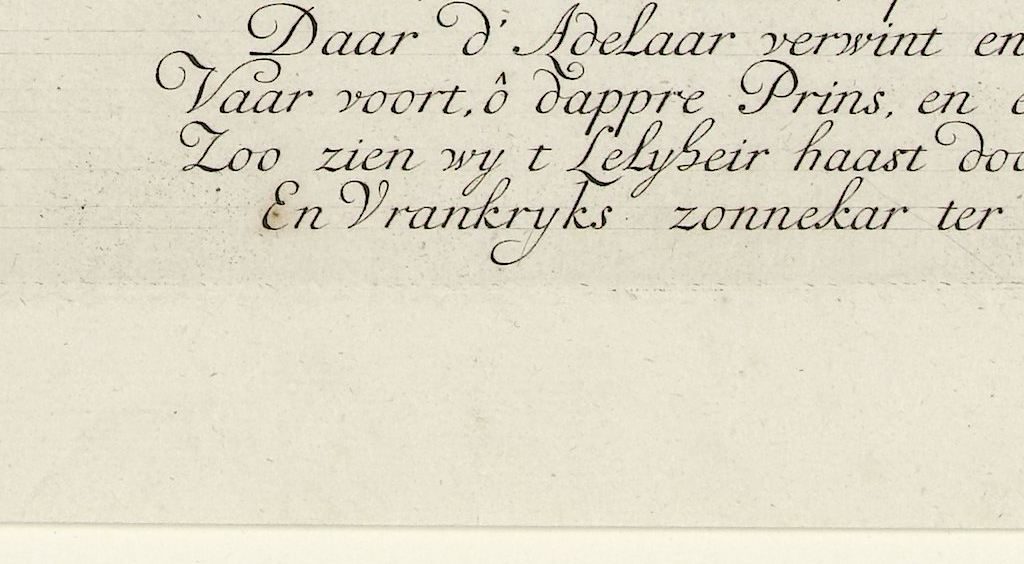 Daar d' Adelaar verwint en
Vaar voort, ô dappre Prins, en
Zoo zien wy t Lelyheir haast
En Vrankryks zonnekar ter